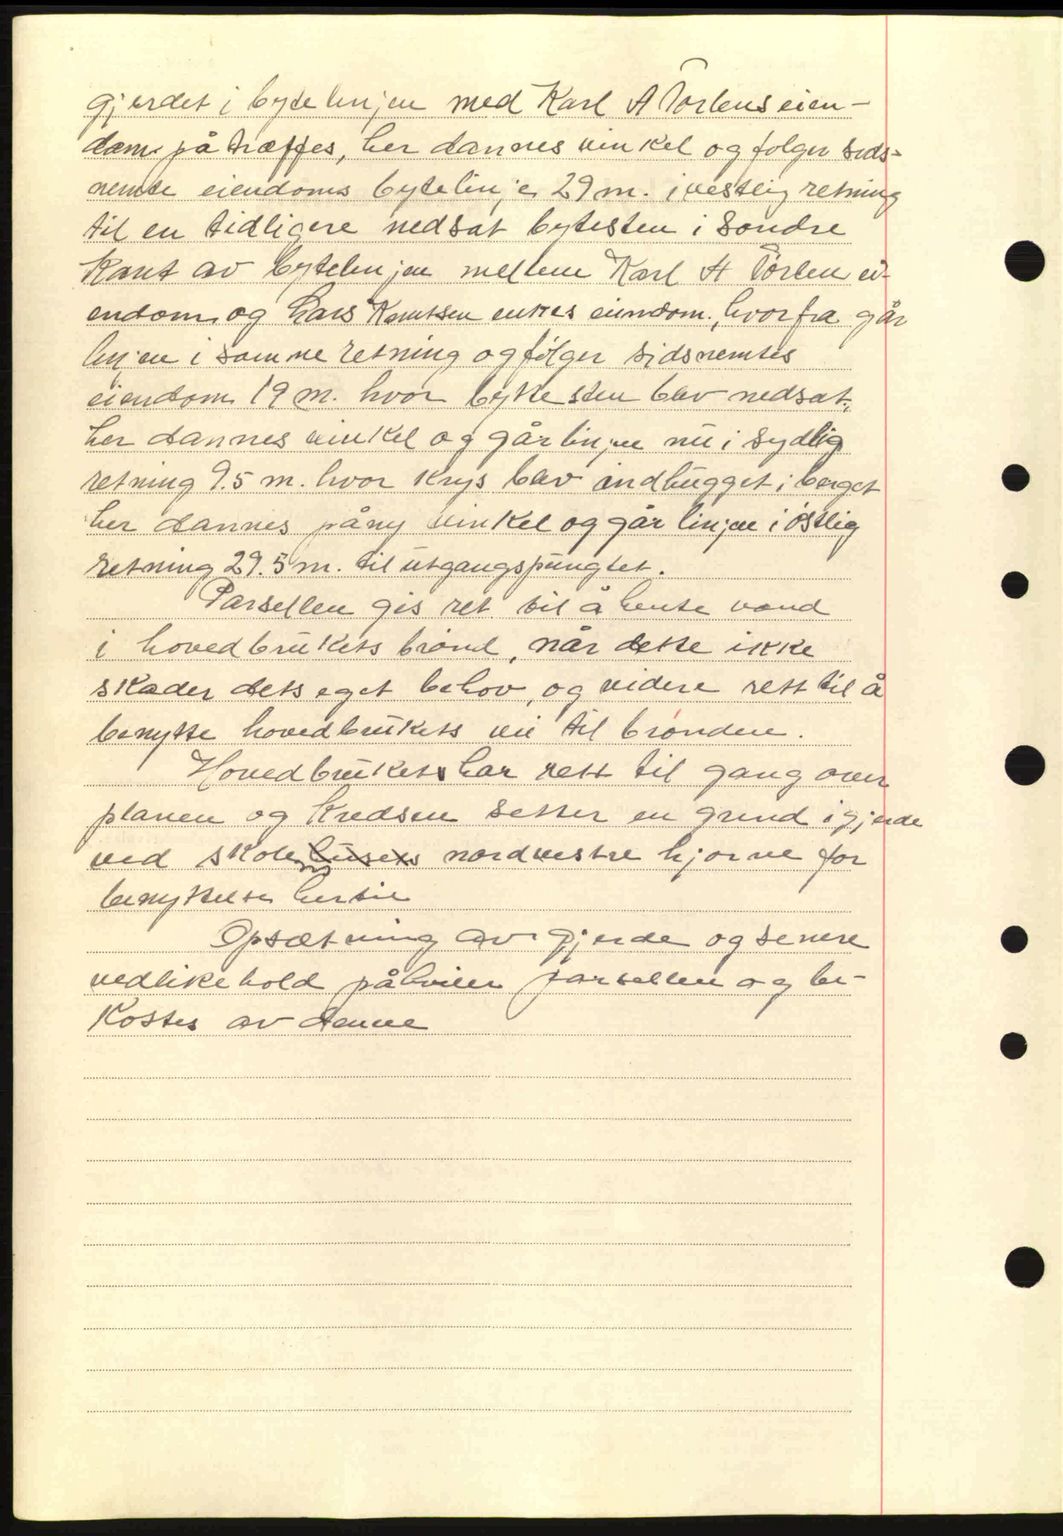 gjerdet i bytelinjen med Karl A Torlens eien-
dom på træffes, her dannes vinkel og følger sids-
nemte eiendoms bytelinje 29 m. i vestlig retning
til en tidligere nedsat bytesten i søndre
Kant av bytelinjen mellem Karl A Torlen ei-
endom og Lars Knutsen enkes eiendom, hvorfra går
linjen i samme retning og følger sidsnemtes
eiendom 19 m. hvor byttesten blev nedsat,
her dannes vinkel og går linjen nu i sydlig
retning 9.5 m. hvor Krys blev indhugget i berget
her dannes påny vinkel og går linjen i østlig
retning 29.5 m. til utgangspungtet.
Parsellen gis ret til å hente vand
i hovedbrukets brønd, når dette ikke
skader dets eget behov, og videre rett til å
benytte hovedbrukets vei til brønden.
Hovedbrukets har rett til gang over
planen og Kredsen setter en grind i gjerde
ved skolehusets nordvestre hjørne for
benyttelse hertil
Opsætning av gjerde og senere
vedlikehold påhviler parsellen og be-
Kostes av denne